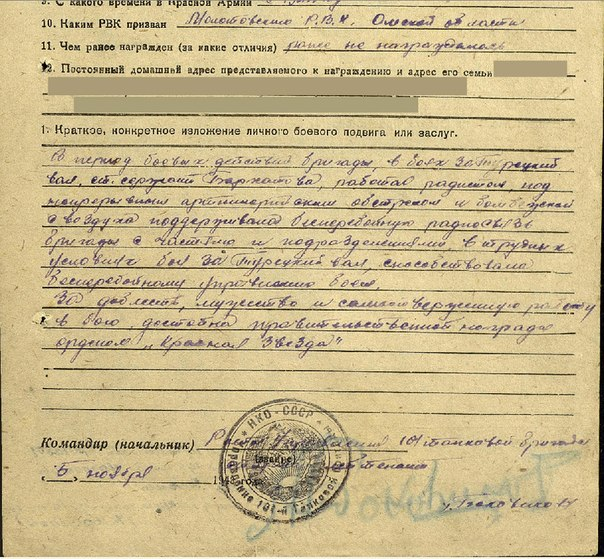 9. С какого времени в Красной Армии
10. Каким РВК призван Молотовским Р.В.К. Омской области
11. Чем ранее награжден (за какие отличия) ранее не награждалась
12. Постоянный домашний адрес представляемого к награждению и адрес его семьи
1. Краткое, конкретное изложение личного боевого подвига или заслуг.
В период боевых действий бригады в боях за Турецкий
вал, ст. сержант работая радистом под
непрерывным артиллерийским обстрелом и бомбежкой
с воздуха поддерживала бесперебойную радиосвязь
бригады с частями и подразделениями, в трудных
условиях боя за Турецкий вал, способствовала
бесперебойному управлению боем.
За доблесть, мужество и самоотверженную работу
в бою, достойна правительственной награды
орденом „Красная Звезда"
НКО-СССР
Командир (начальник) 101 танковой бригады
(звание)
5 ноября 194 года
101-й танковой